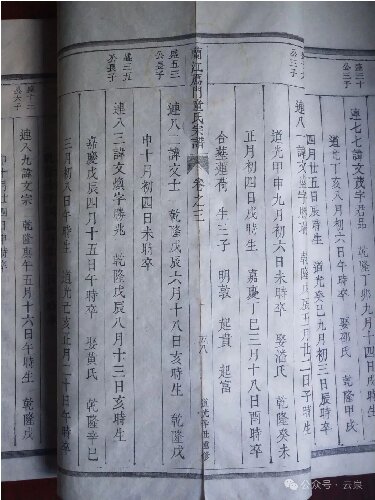 公三子
連七七諱文茂字君品 乾隆丁卯九月
娶邵氏 乾隆甲戌
四月廿五日辰時生 道光癸巳九月初三日辰時卒
公三子
連八
道光甲申九月初六日未時卒 娶潘氏 乾隆癸未
正月初四日戌時生 嘉慶丁巳三月十八日酉時卒
合葬蓮塘 生三子 明敦 起貴 起富
蘭江 門童氏宗譜 卷之三
連五三
公長子
連八二諱文士 乾隆戊辰六月十八日亥時生 乾隆戊
申十月初四日未時卒
連三五
公長子
連八三諱文煥字勝兆 乾隆戊辰八月十三日亥時生
嘉慶戊辰四月十五日午時卒 娶黃氏 乾隆辛巳
三月初八日午時生 道光 亥正月二十日午時卒
連八九諱文宗 乾隆庚午五月十六日午時生 乾隆戊
公众号·云泉